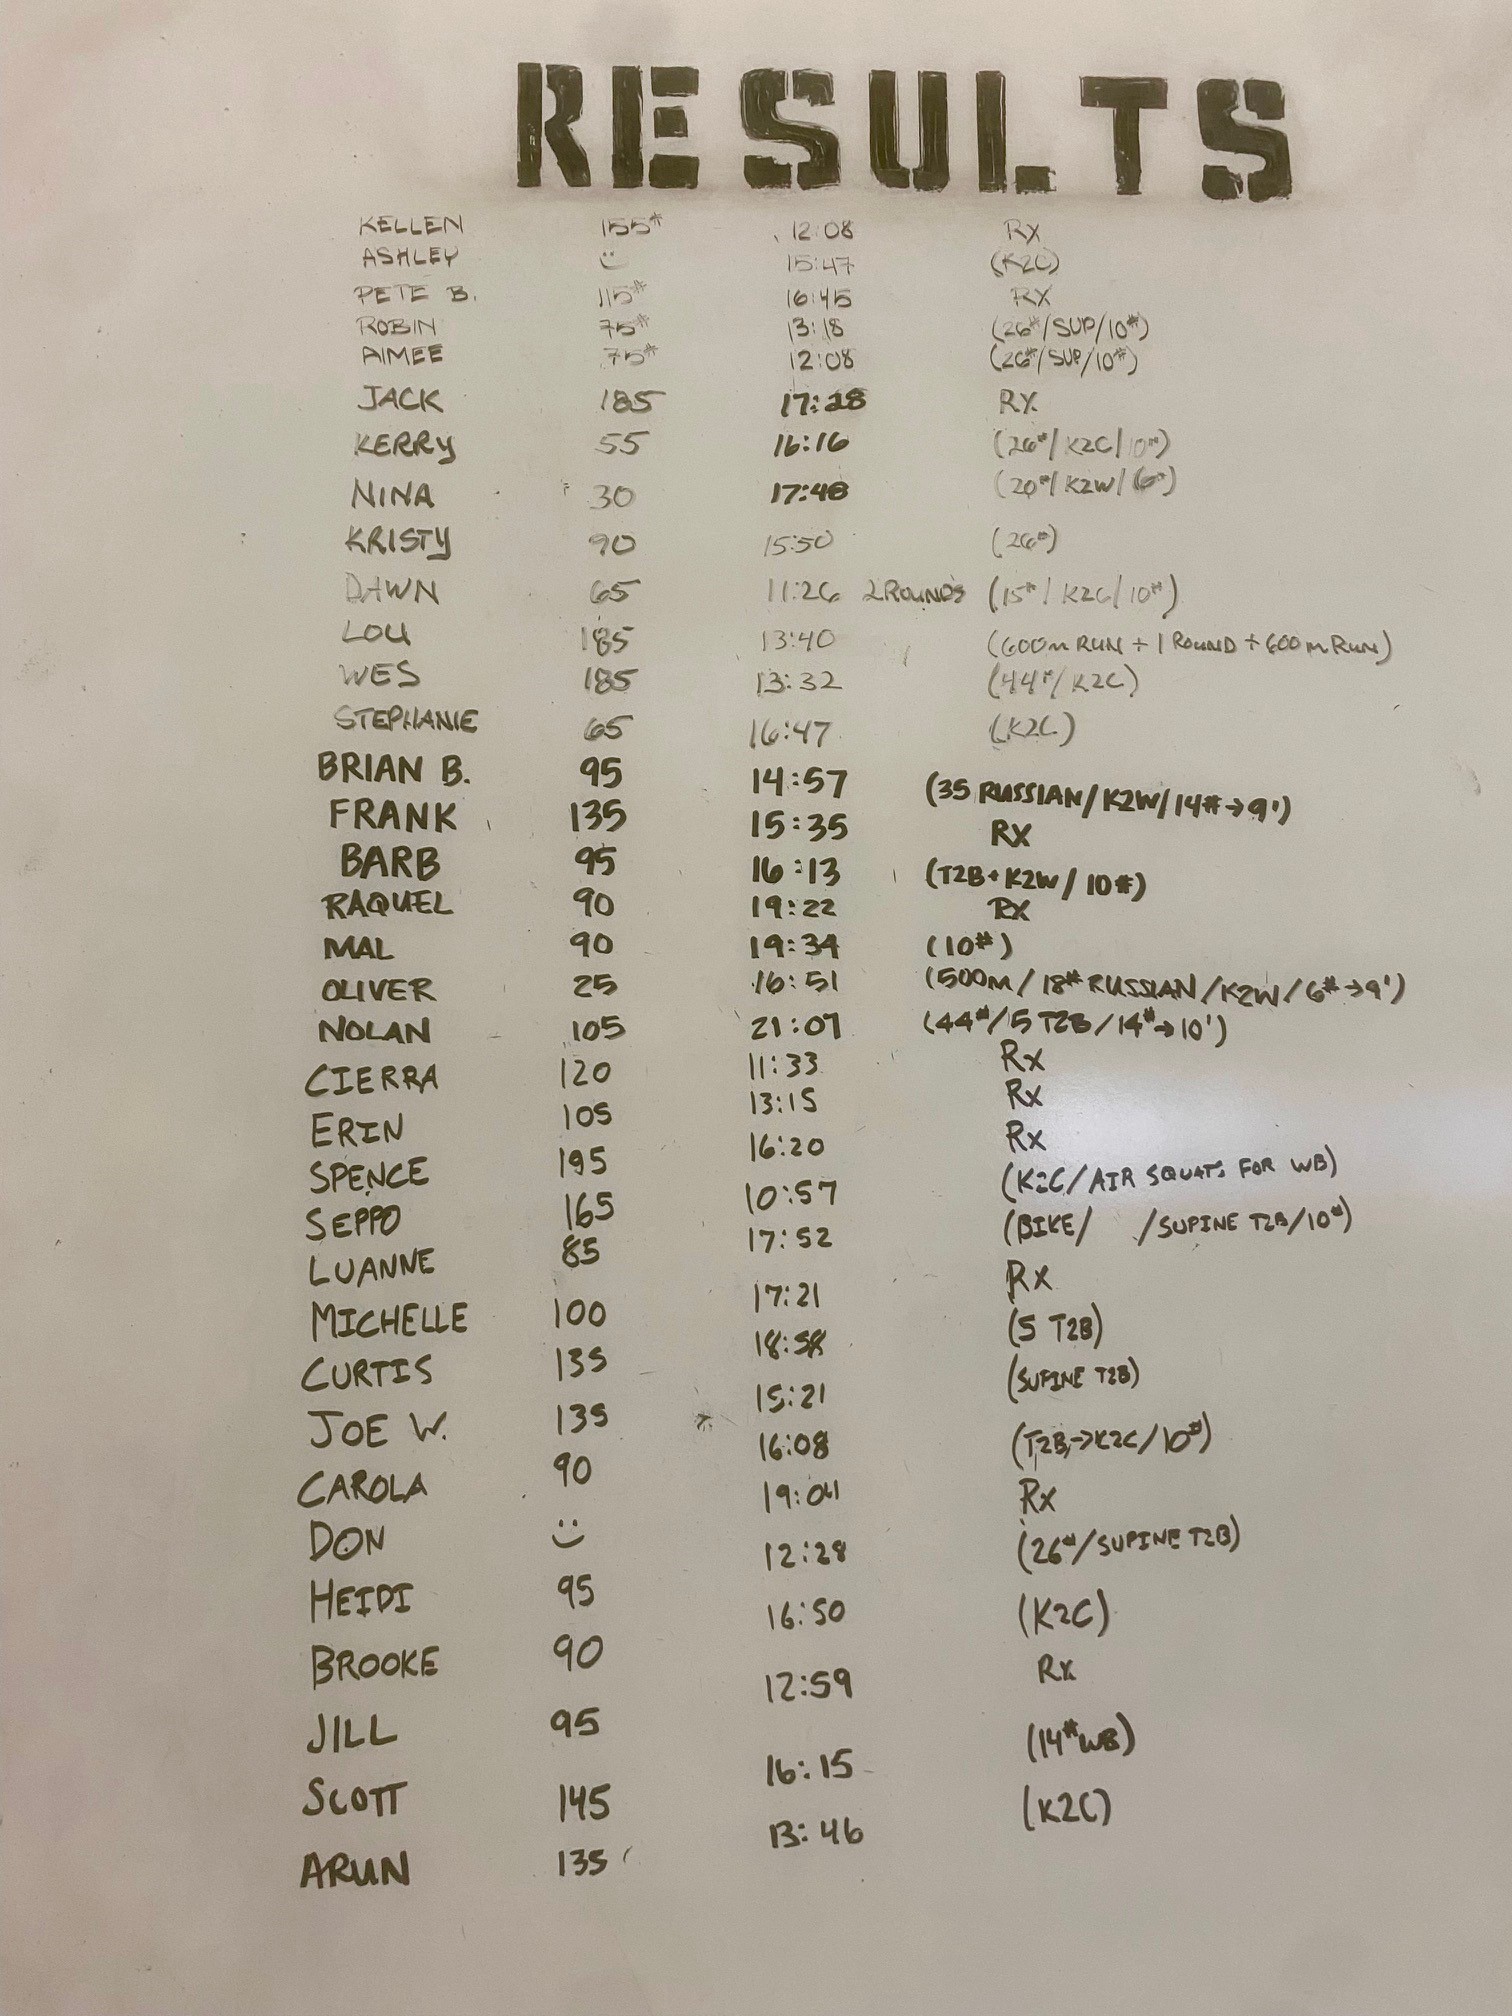 RESULTS
KELLEN 155# 12:08 Rx
ASHLEY :) 15:47 (K2C)
PETE B. 115# 16:45 RX
ROBIN 75# 13:18 (26#/SUP/10#)
AIMEE 75# 12:08 (26#/SUP/10#)
JACK 185 17:28 RX
KERRY 55 16:16 (26#/K2C/10#)
NINA 30 17:48 (20#/K2W/6#)
KRISTY 90 15:50 (26#)
DAWN 65 11:26 2 ROUNDS (15#/K2C/10#)
LOU 185 13:40 (600m RUN + 1 ROUND + 600m RUN)
WES 185 13:32 (44#/K2C)
STEPHANIE 65 16:47 (K2C)
BRIAN B. 95 14:57 (35 RUSSIAN/K2W/14#→9')
FRANK 135 15:35 RX
BARB 95 16:13 (T2B+K2W/10#)
RAQUEL 90 19:22 RX
MAL 90 19:34 (10#)
OLIVER 25 16:51 (500M/18# RUSSIAN/K2W/6#→9')
NOLAN 105 21:07 (44#/5 T2B/14#→10')
CIERRA 120 11:33 Rx
ERIN 105 13:15 Rx
SPENCE 195 16:20 Rx
SEPPO 165 10:57 (K2C/AIR SQUATS FOR WB)
LUANNE 85 17:52 (BIKE/ /SUPINE T2B/10#)
MICHELLE 100 17:21 Rx
CURTIS 135 18:58 (5 T2B)
JOE W. 135 15:21 (SUPINE T2B)
CAROLA 90 16:08 (T2B→K2C/10#)
DON :) 19:04 Rx
HEIDI 95 12:28 (26#/SUPINE T2B)
BROOKE 90 16:50 (K2C)
JILL 95 12:59 Rx
SCOTT 145 16:15 (14# WB)
ARUN 135 13:46 (K2C)